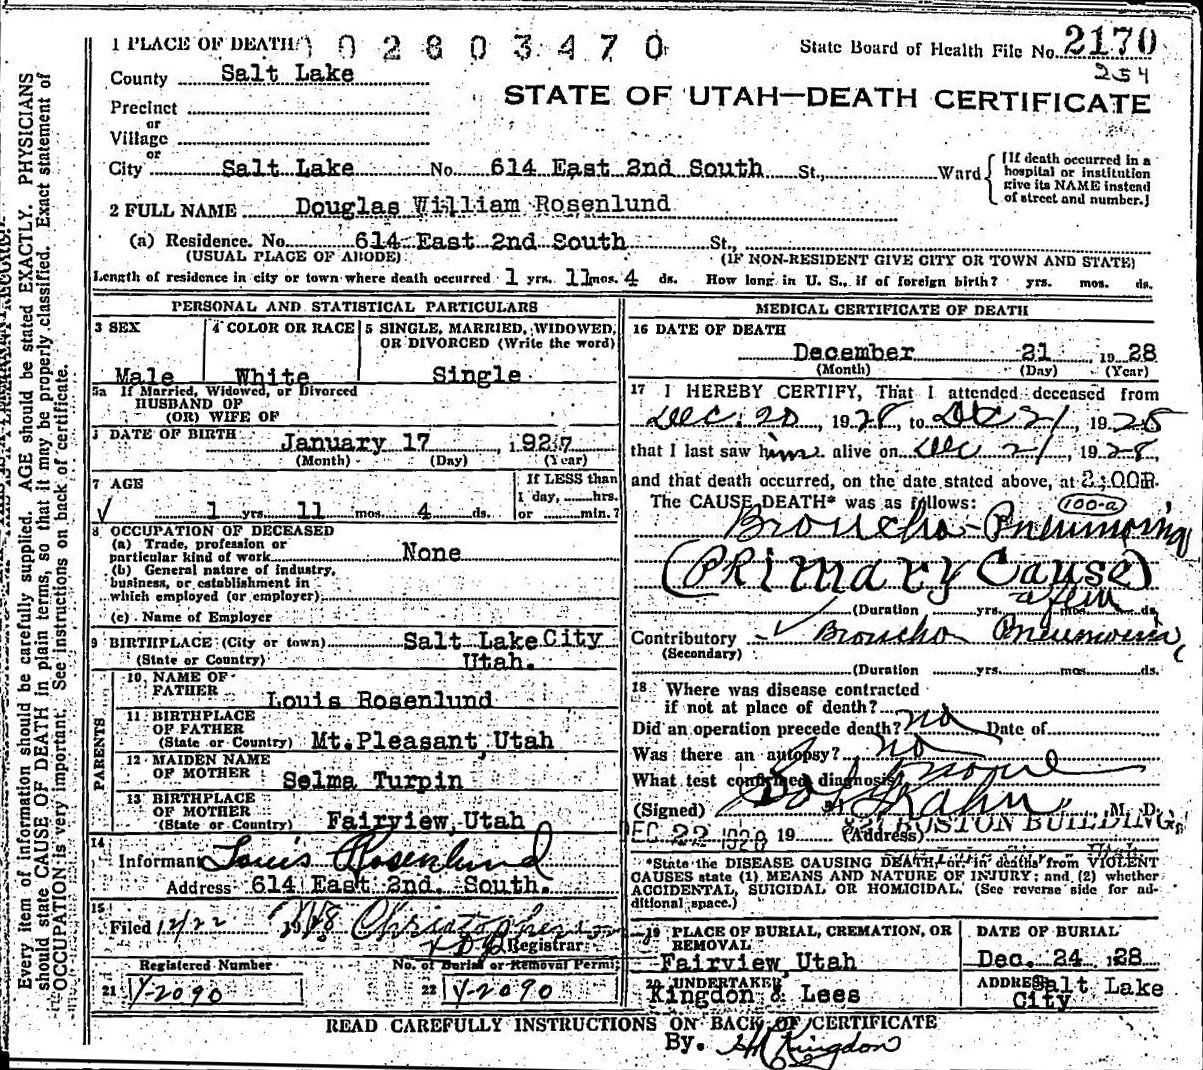 Every item of information should be carefully supplied. AGE should be stated EXACTLY. PHYSICIANS
should state CAUSE OF DEATH in plain terms, so that it may be properly classified. Exact statement of
OCCUPATION is very important. See instructions on back of certificate.
1 PLACE OF DEATH
0 2 8 0 3 4 7 0
State Board of Health File No. 2170
254
County Salt Lake
STATE OF UTAH—DEATH CERTIFICATE
Precinct
or
Village
or
City Salt Lake No. 614 East 2nd South St., Ward
[If death occurred in a hospital or institution give its NAME instead of street and number.]
2 FULL NAME Douglas William Rosenlund
(a) Residence. No. 614 East 2nd South St.,
(USUAL PLACE OF ABODE) (IF NON-RESIDENT GIVE CITY OR TOWN AND STATE)
Length of residence in city or town where death occurred 1 yrs. 11 mos. 4 ds. How long in U. S., if of foreign birth? yrs. mos. ds.
PERSONAL AND STATISTICAL PARTICULARS
3 SEX
Male
4 COLOR OR RACE
White
5 SINGLE, MARRIED, WIDOWED,
OR DIVORCED (Write the word)
Single
5a If Married, Widowed, or Divorced
HUSBAND OF
(OR) WIFE OF
DATE OF BIRTH January 17, 1927
(Month) (Day) (Year)
7 AGE
1 yrs. 11 mos. 4 ds.
If LESS than
1 day, hrs.
or min.?
8 OCCUPATION OF DECEASED
(a) Trade, profession or
particular kind of work None
(b) General nature of industry,
business, or establishment in
which employed (or employer)
(c) Name of Employer
9 BIRTHPLACE (City or town) Salt Lake City
(State or Country) Utah.
PARENTS
10 NAME OF
FATHER Louis Rosenlund
11 BIRTHPLACE
OF FATHER
(State or Country) Mt.Pleasant, Utah
12 MAIDEN NAME
OF MOTHER Selma Turpin
13 BIRTHPLACE
OF MOTHER
(State or Country) Fairview, Utah
14
Informant Louis Rosenlund
Address 614 East 2nd. South.
15
Filed 12/22
Registrar
Registered Number
21 Y-2090
No. of Burial or Removal Permit
22 Y-2090
MEDICAL CERTIFICATE OF DEATH
16 DATE OF DEATH
December 21 1928
(Month) (Day) (Year)
17 I HEREBY CERTIFY, That I attended deceased from
Dec. 20, 1928, to Dec 21, 1928
that I last saw him alive on Dec 21, 1928,
and that death occurred, on the date stated above, at
The CAUSE DEATH* was as follows: 100-a
Broncho-Pneumonia
(PRimary Cause)
(Duration yrs. mos. ds.
Contributory Broncho Pneumonia
(Secondary)
(Duration yrs. mos. ds.
18 Where was disease contracted
if not at place of death?
Did an operation precede death? no Date of
Was there an autopsy? no
What test confirmed diagnosis?
(Signed) Kahn, M. D.
DEC 22 1928 19 (Address) BOSTON BUILDING,
*State the DISEASE CAUSING DEATH, or, in deaths from VIOLENT
CAUSES state (1) MEANS AND NATURE OF INJURY; and (2) whether
ACCIDENTAL, SUICIDAL OR HOMICIDAL. (See reverse side for ad-
ditional space.)
19 PLACE OF BURIAL, CREMATION, OR
REMOVAL
Fairview, Utah
DATE OF BURIAL
Dec. 24 1928
20 UNDERTAKER
Kingdon & Lees
ADDRESS Salt Lake
City
READ CAREFULLY INSTRUCTIONS ON BACK OF CERTIFICATE
By. Kingdon